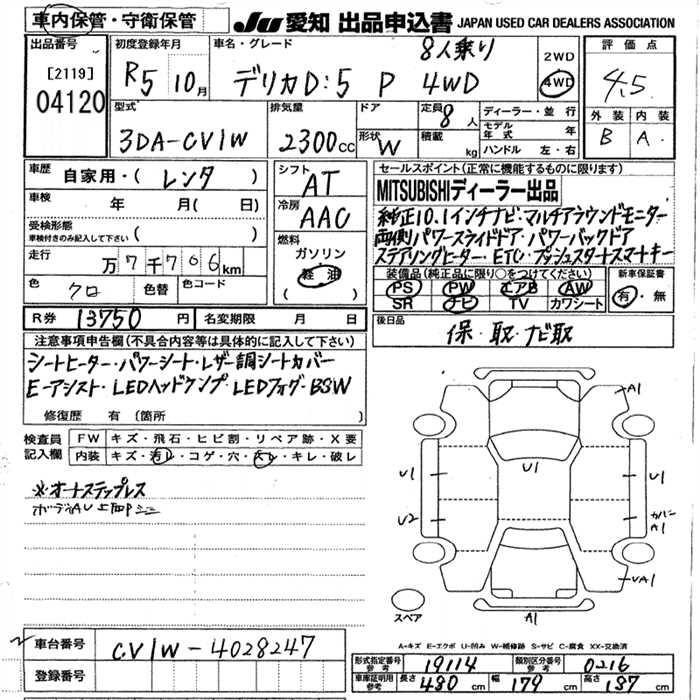 車内保管・守衛保管
JU 愛知 出品申込書 JAPAN USED CAR DEALERS ASSOCIATION
出品番号
[2119]
04120
初度登録年月
R5 10月
車名・グレード
8人乗り
デリカD:5 P 4WD
2WD
4WD
評価点
4.5
外装 内装
B A
型式
3DA-CV1W
排気量
2300cc
ドア
形状 W
定員 8人
積載 kg
ディーラー・並行
モデル年式 年
ハンドル 左・右
車歴
自家用・(レンタ)
車検
年 月(日)
受検形態
車検付きのみ記入して下さい ( )
走行
万7千706km
色
クロ
色替
色コード
シフト
AT
冷房
AAC
燃料
ガソリン
軽油
( )
セールスポイント(正常に機能するものに限ります)
MITSUBISHIディーラー出品
純正10.1インチナビ・マルチアラウンドモニター
両側パワースライドドア・パワーバックドア
ステアリングヒーター・ETC・プッシュスタートスマートキー
装備品(純正品に限り○をつけてください)
PS PW エアB AW
SR ナビ TV カワシート
新車保証書
有・無
R券 13750円
名変期限 月 日
後日品
保・取・ナビ取
注意事項申告欄(不具合内容等は具体的に記入して下さい)
シートヒーター・パワーシート・レザー調シートカバー
E-アシスト・LEDヘッドランプ・LEDフォグ・BSW
修復歴 有(箇所 )
検査員記入欄
FW キズ・飛石・ヒビ割・リペア跡・X要
内装 キズ・汚レ・コゲ・穴・スレ・キレ・破レ
※オートステップレス
ボディAU
A1
U1
U1
U1
U2
カバーA1
UA1
A1
スペア
A-キズ E-エクボ U-凹み W-補修跡 S-サビ C-腐食 XX-交換済
車台番号
CV1W-4028247
登録番号
形式指定番号 参考 19114
類別区分番号 参考 0216
車庫証明用 参考 長さ 480cm 幅 179cm 高さ 187cm